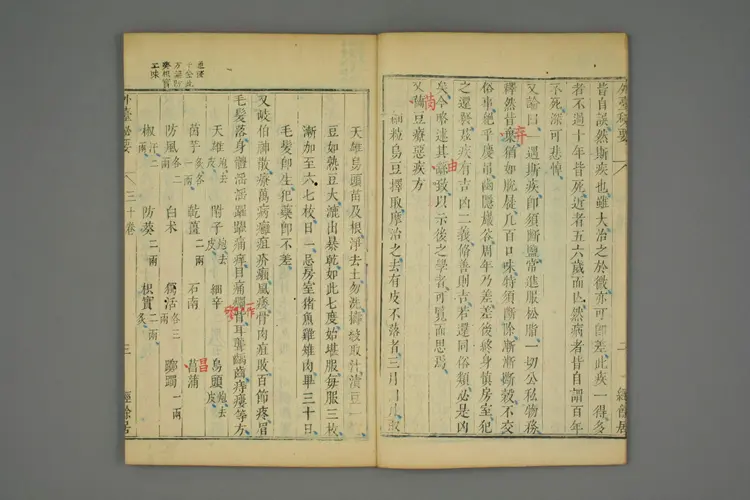 外臺秘要
皆自誤然斯疾也雖大治之於微亦可即差此疾一得多
者不過十年皆死近者五六歲而亡然病者皆自謂百年
不死深可悲悼
又論曰一遇斯疾即須斷鹽常進服松脂一切公私物務
釋然皆棄猶如脫屣凡百口味特須斷除漸漸斷穀不交
俗事絕乎慶弔幽隱巖谷周年乃差差後終身慎房室犯
之還發茲疾有吉凶二義修善則吉若還同俗類必是凶
矣今略述其致以示後之學者可覽而思焉
由
又豆療惡疾方
細粒烏豆擇取摩治之去有皮不落者三月四月取
天雄烏頭苗及根淨去土勿洗擣絞取汁漬豆一
豆如熟豆大漉出暴乾如此七度始堪服每服三枚
漸加至六七枚日一忌房室豬魚雞雉肉畢三十日
毛髮即生犯藥即不差
又岐伯神散療萬病癰疽疥癩風痿骨肉疽敗百節疼眉
毛髮落身體淫淫躍躍痛痒目痛眥耳聾齲齒痔瘻等方
天雄炮去皮 附子炮去皮 細辛 烏頭炮去皮
茵芋炙各一兩 乾薑二兩 石南 菖蒲
昌
防風各二兩 白朮 獨活各三兩 躑躅一兩
椒汗二兩 防葵二兩 枳實二兩炙
外臺秘要 三十卷 三 經餘居